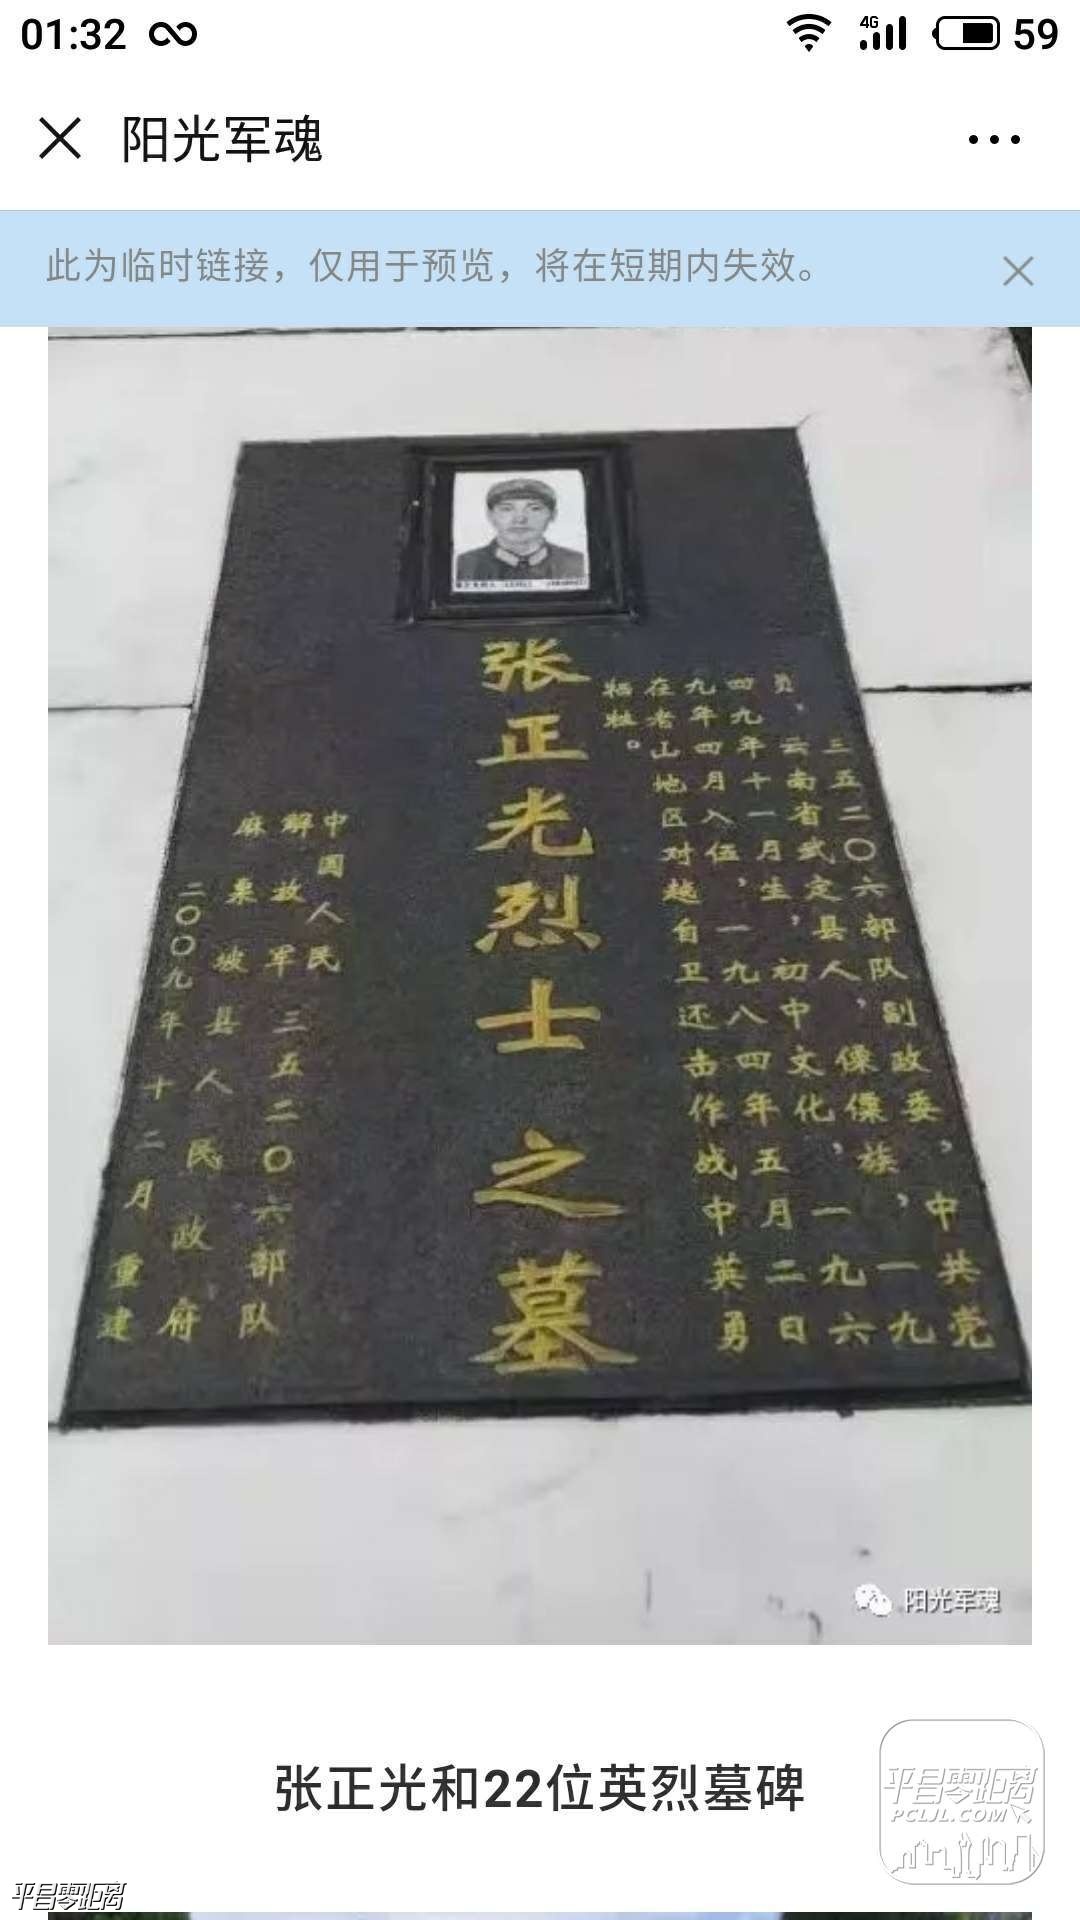 01:32
4G
59
阳光军魂
此为临时链接，仅用于预览，将在短期内失效。
三五二〇六部队副政委，中共党
员，云南省武定县人，傈僳族，一九
四九年十一月生，初中文化，一九六
九年四月入伍，一九八四年五月二日
在老山地区对越自卫还击作战中英勇
牺牲。
张正光烈士之墓
中国人民
解放军三五二〇六部队
麻栗坡县人民政府
二〇〇九年十二月重建
阳光军魂
张正光和22位英烈墓碑
平昌零距离
PCLJL.COM
平昌零距离